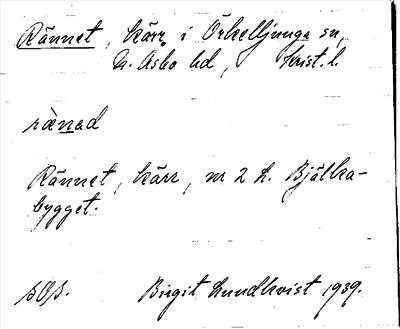 Rännet, kärr i Örkelljunga sn,
N. Åsbo hd, Krist. l.
ränad
Rännet, kärr, nr 2 h. Bjälka-
bygget.
Birgit Lundkvist 1939.